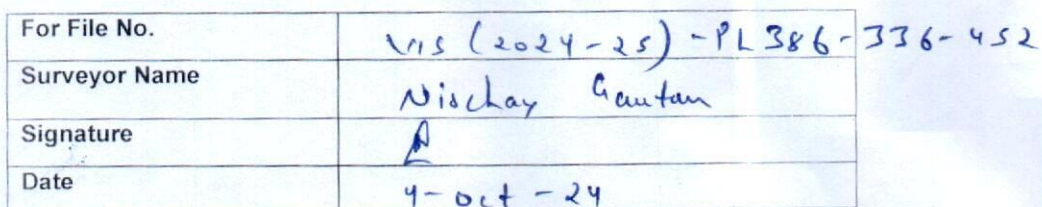 For File No. VIS (2024-25) -PL386-336-452
Surveyor Name Nischay Gautam
Signature
Date 4-Oct-24